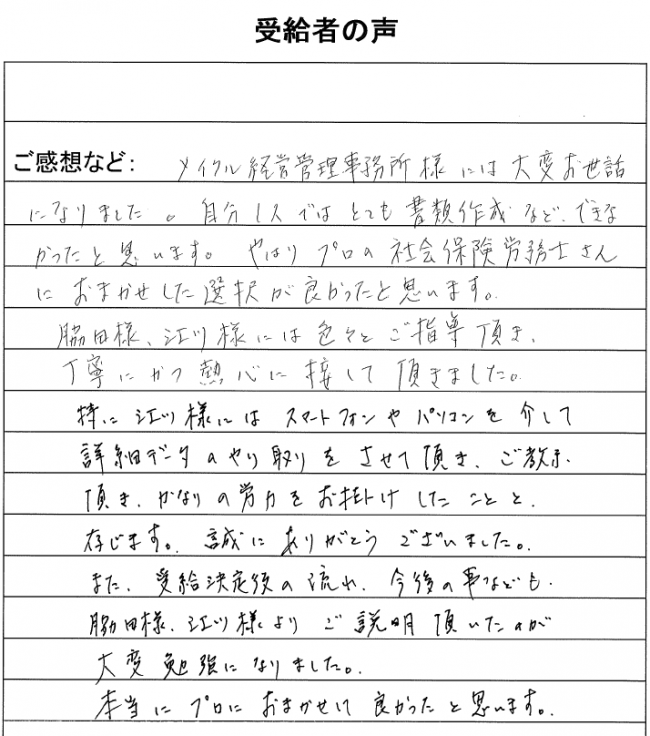 受給者の声
ご感想など: メイクル経営管理事務所様には大変お世話
になりました。自分1人ではとても書類作成など、できな
かったと思います。やはりプロの社会保険労務士さん
におまかせした選択が良かったと思います。
脇田様、江ツ様には色々とご指導頂き、
丁寧にかつ熱心に接して頂きました。
特に江ツ様にはスマートフォンやパソコンを介して
詳細データのやり取りをさせて頂き、ご教示
頂き、かなりの労力をお掛けしたことと、
存じます。誠にありがとうございました。
また、受給決定後の流れ、今後の事なども、
脇田様、江ツ様よりご説明頂いたのが
大変勉強になりました。
本当にプロにおまかせして良かったと思います。